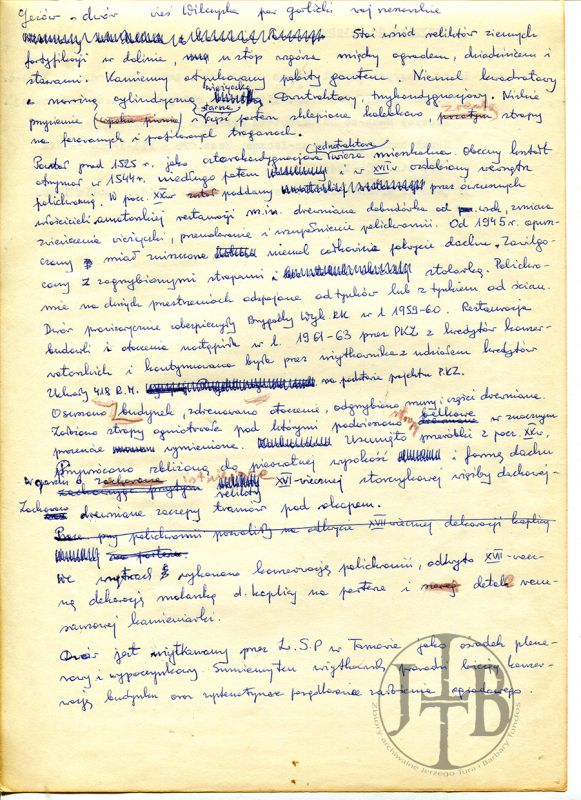 Jeżów - dwór wieś Wilczyska pow gorlicki woj rzeszowskie
Stoi wśród reliktów ziemnych
fortyfikacji w dolinie, u stóp wzgórza między ogrodem, dziedzińcem i
stawami. Kamienny otynkowany pobity gontem. Niemal kwadratowy
z narożną cylindryczną wieżyczką. Dwutraktowy, trzykondygnacjowy. Niskie
przyziemie (wysokie piwnice) i starsza część parteru sklepione kolebkowo, poza tym stropy
na fazowanych i profilowanych tragarzach.
Powstał przed 1525 r. jako czterokondygnacjowa jednotraktowa wieża mieszkalna. Obecny kształt
otrzymał w 1544 r. niedługo potem i w XVII w ozdobiony wewnątrz
polichromią. W pocz. XX w został poddany przez ówczesnych
właścicieli amatorskiej restauracji m.in. drewniana dobudówka od wsch, zmiana
zwieńczenia wieżyczki, przemalowanie i uzupełnienie polichromii. Od 1945 r. opusz-
czony miał zniszczone niemal całkowicie pokrycie dachu. Zawilgo-
cony z zagrzybionymi stropami i stolarką. Polichro-
mie na dużych przestrzeniach odspojone od tynków lub z tynkiem od ścian.
Dwór prowizorycznie zabezpieczyły Brygady Wyk. KK w l. 1959-60. Restauracja
budowli i otoczenia nastąpiła w l. 1961-63 przez PKZ z kredytów konser-
watorskich i kontynuowana była przez użytkownika z udziałem kredytów
Uchwały 418 R.M. na podstawie projektu PKZ.
Osuszono budynek, zdrenowano otoczenie, odgrzybiono mury i części drewniane.
Założono stropy ogniotrwałe pod którymi podwieszono stropy belkowe drewniane w znacznym
procencie wymienione. Usunięto przeróbki z pocz. XX w.
Przywrócono zbliżoną do pierwotnej wysokość i formę dachu
W oparciu o zachowane istniejące relikty XVI-wiecznej storczykowej więźby dachowej.
Zachowano drewniane zaczepy tramów pod okapem.
Prace przy polichromii pozwoliły na odkrycie XVII-wiecznej dekoracji kaplicy
na parterze.
We wnętrzach wykonano konserwację polichromii, odkryto XVII-wiecz-
ną dekorację malarską d. kaplicy na parterze i szereg detali rene-
sansowej kamieniarki.
Dwór jest użytkowany przez Z.S.P w Tarnowie jako ośrodek plene-
rowy i wypoczynkowy. Sumienny użytkownik prowadzi bieżącą konser-
wację budynku oraz systematyczne porządkowanie założenia ogrodowego.
JTB
Zbiory archiwalne Jerzego Tura i Barbary Tondos